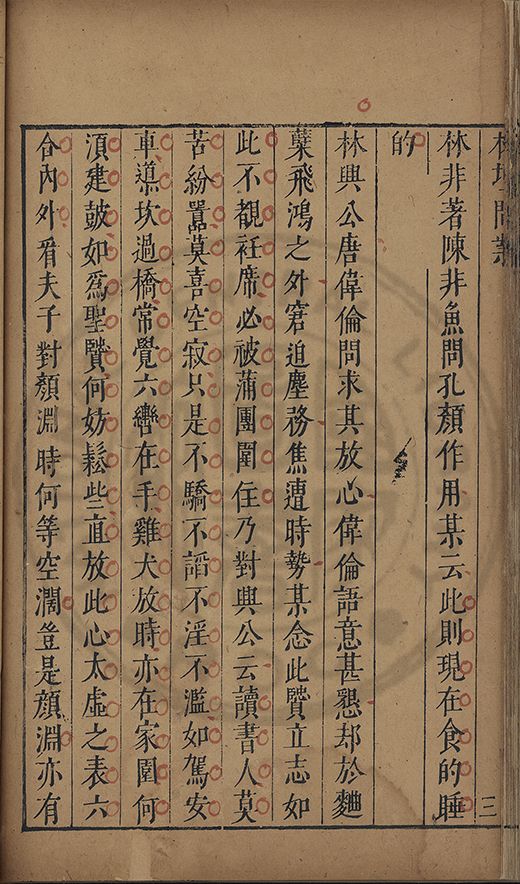 榕壇問業
三
林非著陳非魚問孔顏作用某云此則現在食的睡
的
林興公唐偉倫問求其放心偉倫語意甚懇却於麯
蘖飛鴻之外窘迫塵務焦遭時勢某念此賢立志如
此不覩衽席必被蒲團圍住乃對興公云讀書人莫
苦紛囂莫喜空寂只是不驕不謟不淫不濫如駕安
車導坎過橋常覺六轡在手雞犬放時亦在家圍何
湏建鼓如爲聖賢何妨鬆些直放此心太虛之表六
合內外看夫子對顏淵時何等空濶豈是顏淵亦有